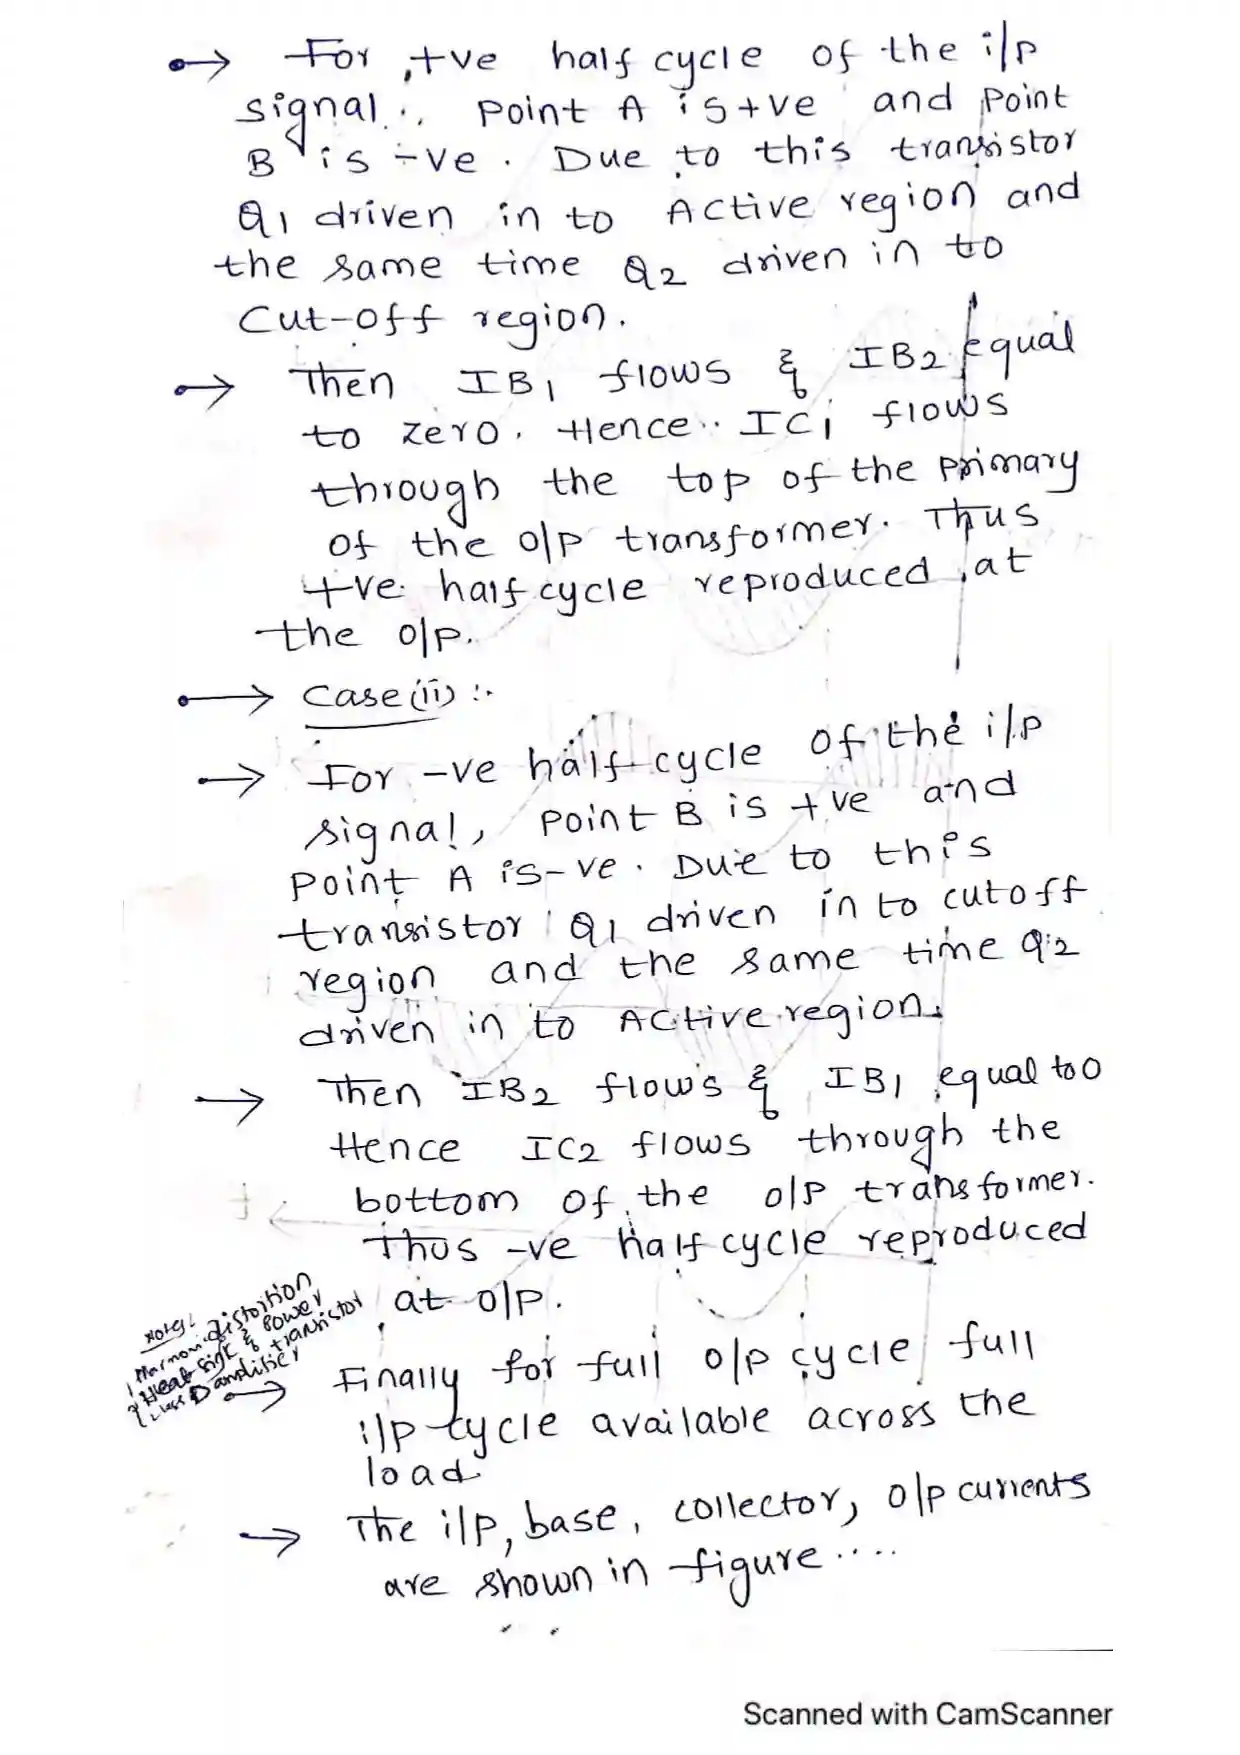 For +ve half cycle of the i/p
signal, point A is +ve and point
B is -ve. Due to this transistor
Q1 driven in to Active region and
the same time Q2 driven in to
Cut-off region.
Then IB1 flows & IB2 equal
to zero. Hence IC1 flows
through the top of the primary
of the o/p transformer. Thus
+ve half cycle reproduced at
the o/p.
Case (ii) :-
For -ve half cycle of the i/p
signal, point B is +ve and
point A is -ve. Due to this
transistor Q1 driven in to cutoff
region and the same time Q2
driven in to Active region.
Then IB2 flows & IB1 equal to 0
Hence IC2 flows through the
bottom of the o/p transformer.
Thus -ve half cycle reproduced
at o/p.
Notes:
Harmonic distortion
Heat sink & power transistor
class D amplifier
Finally for full o/p cycle full
i/p cycle available across the
load.
The i/p, base, collector, o/p currents
are shown in figure ....
Scanned with CamScanner